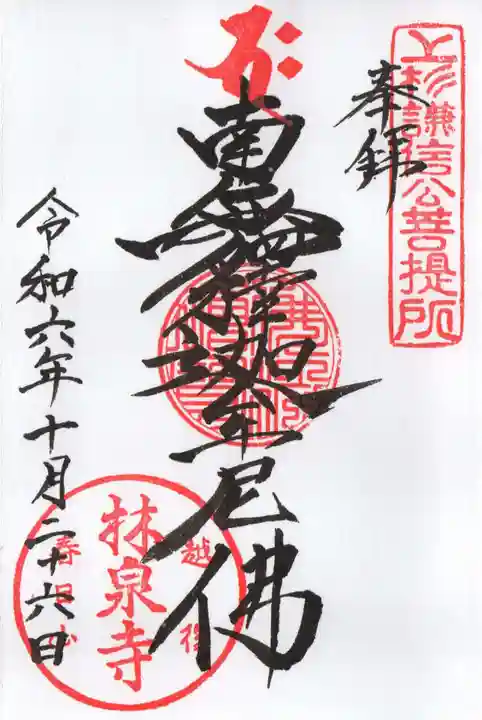 上杉謙信公菩提所
奉拝
南無釋迦牟尼佛
林泉寺
越後
春日山
令和六年十月二十六日